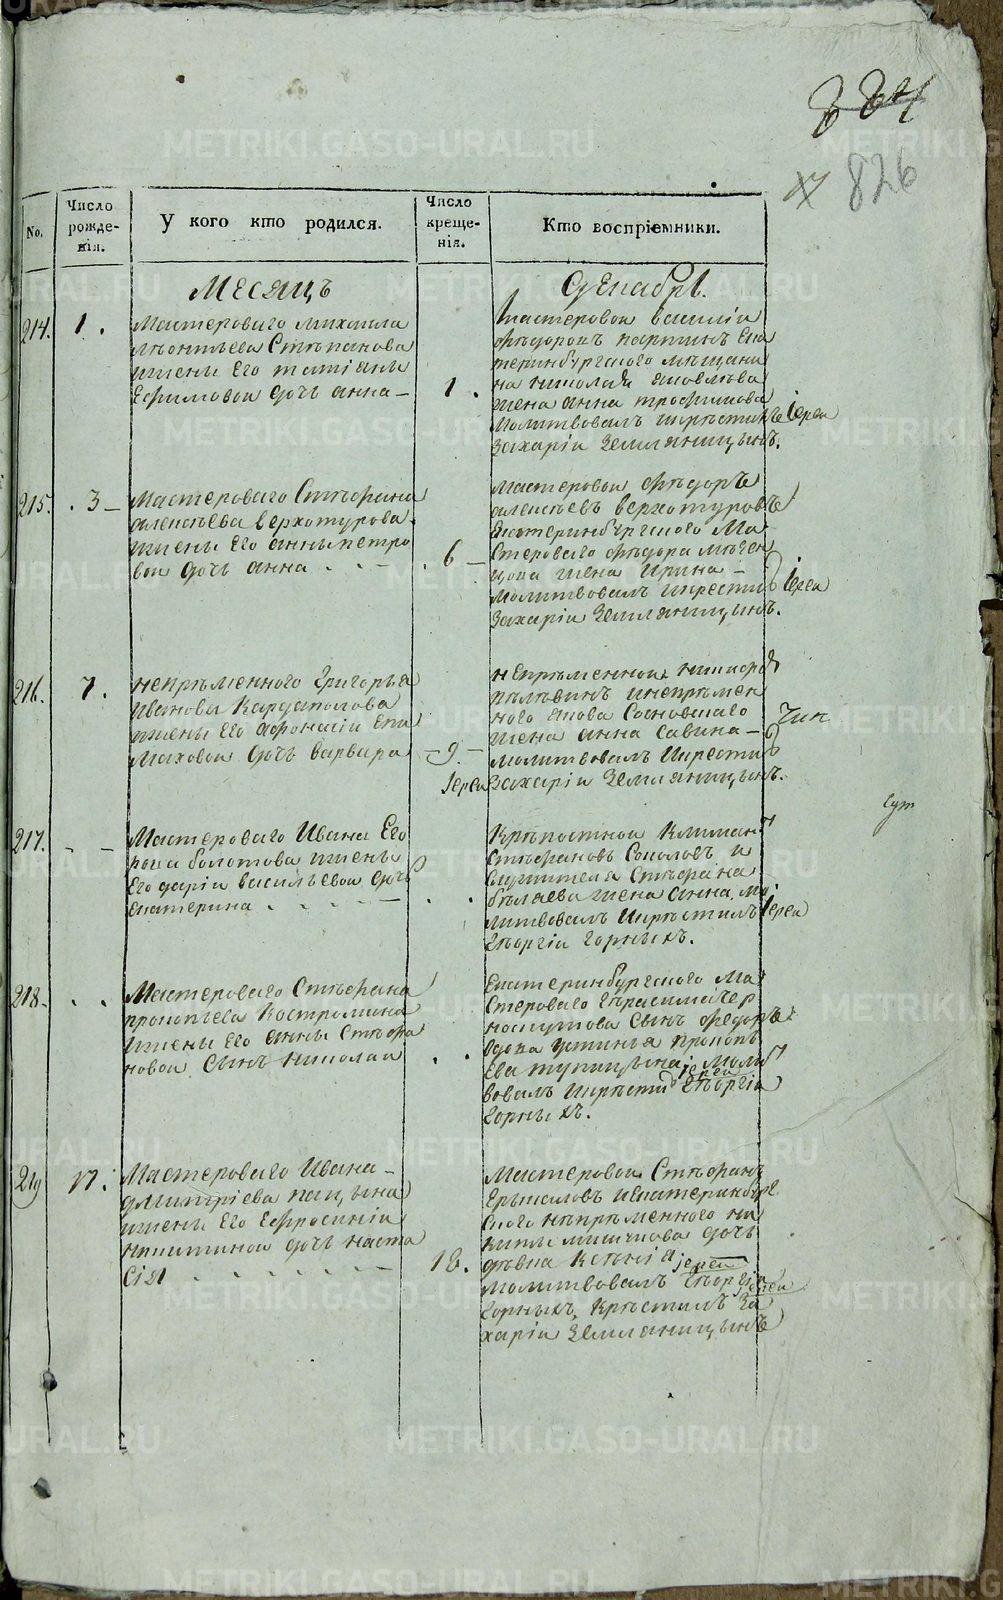 884
826
No.
Число рожденiя.
У кого кто родился.
Число крещенiя.
Кто воспрiемники.
Месяцъ
Декабрь.
214.
1.
Мастероваго михаила
леонтьева Степанова
жены Его татiаны
Ефимовой дочь анна –
1.
мастеровой василiи
федоровъ паршинъ Ека
теринбургскаго мещани
на николая яковлева
жена анна трофимова
молитвовалъ икрестилъ Iереи
Захарiи Земляницынъ.
215.
3 –
Мастероваго Стефана
алексеева верхотурова
жены Его анны петро
вои дочь анна . . –
6 –
мастеровои федоръ
алексеевъ верхотуровъ
Екатеринбургскаго Ма
стероваго федора
жена Ирина –
молитвовалъ икрести Iереи
Захарiи Земляницынъ.
216.
7.
непременного Григорья
Иванова Кардаполова
жены Его афонасiи Епи
маховои дочь варвара
– 9 –
непременнои никифор
инепремен
ного якова Сосновскаго
жена анна Савина –
молитвовалъ Икрести
Iереи Захарiи Земляницынъ.
217.
– –
Мастероваго Ивана Его
рова болотова жены
Его дарiи васильевои дочь
Екатерина . . . . –
. .
Крепостнои Климан
Стефановъ Соколовъ и
служителя Стефана
беляева жена анна мо
литвовалъ Икрестилъ Iереи
Георгiи Горныхъ.
218.
. .
Мастероваго Стефана
прокопьева Костромина
жены Его анны Стефа
новои Сынъ николаи
. .
Екатеринбургскаго Ма
стероваго Герасима Чер
носкутова Сынъ федоръ
вдова устинья прокопь
ева тупицына молит
вовалъ Икрести Iереи Георгiи
Горныхъ.
219
17.
Мастероваго Ивана –
дмитрiева пацына
жены Его Ефросинiи
никитинои дочь наста
сiя . . . . . . –
18.
Мастеровои Стефанъ
Ерыкаловъ иЕкатеринбург
скаго непременного ни
киты дочь
девка Ксенiя Iереи
молитвовалъ Георгiи
Горныхъ, Крестилъ Iереи За
харiи Земляницынъ
METRIKI.GASO-URAL.RU